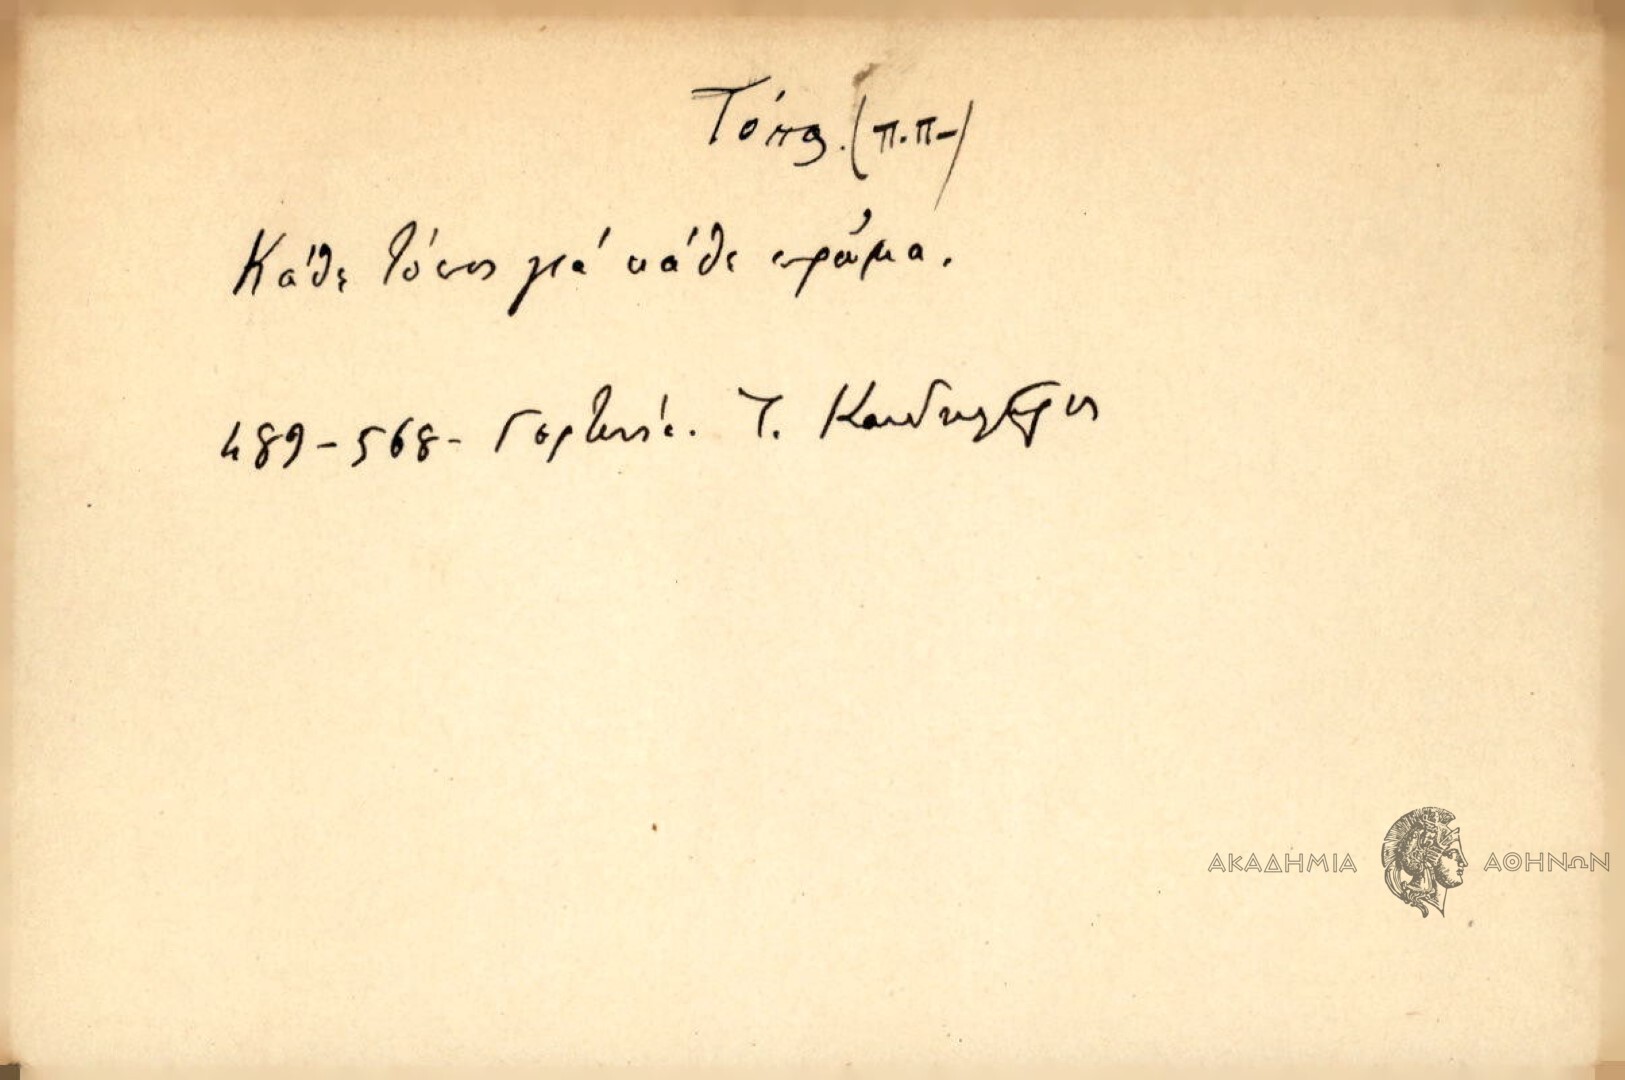 Τόπος. (π.π-)
Κάθε τόπος γιά κάθε πρᾶμα.
489-568- Γορτυνία. Τ. Κανδηλῶρος
ΑΚΑΔΗΜΙΑ ΑΘΗΝΩΝ